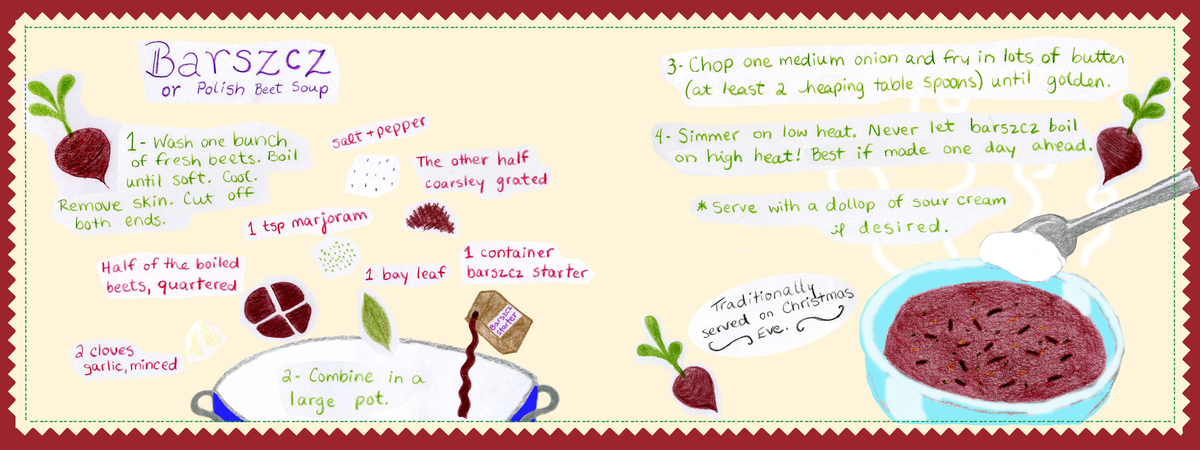 Barszcz
or Polish Beet Soup
1- Wash one bunch
of fresh beets. Boil
until soft. Cool.
Remove skin. Cut off
both ends.
salt + pepper
The other half
coarsley grated
1 tsp marjoram
Half of the boiled
beets, quartered
1 bay leaf
1 container
barszcz starter
Barszcz
starter
2 cloves
garlic, minced
2- Combine in a
large pot.
3- Chop one medium onion and fry in lots of butter
(at least 2 heaping table spoons) until golden.
4- Simmer on low heat. Never let barszcz boil
on high heat! Best if made one day ahead.
* Serve with a dollop of sour cream
if desired.
Traditionally
served on Christmas
Eve.